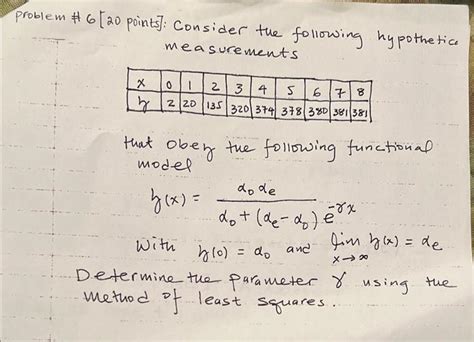 Problem # 6 [20 points]: Consider the following hypothetica
measurements
x 0 1 2 3 4 5 6 7 8
y 2 20 135 320 374 378 380 381 381
that obey the following functional
model
y(x) = α₀ αₑ / (α₀ + (αₑ - α₀) e^{-γx})
With y(0) = α₀ and lim_{x→∞} y(x) = αₑ
Determine the parameter γ using the
method of least squares.